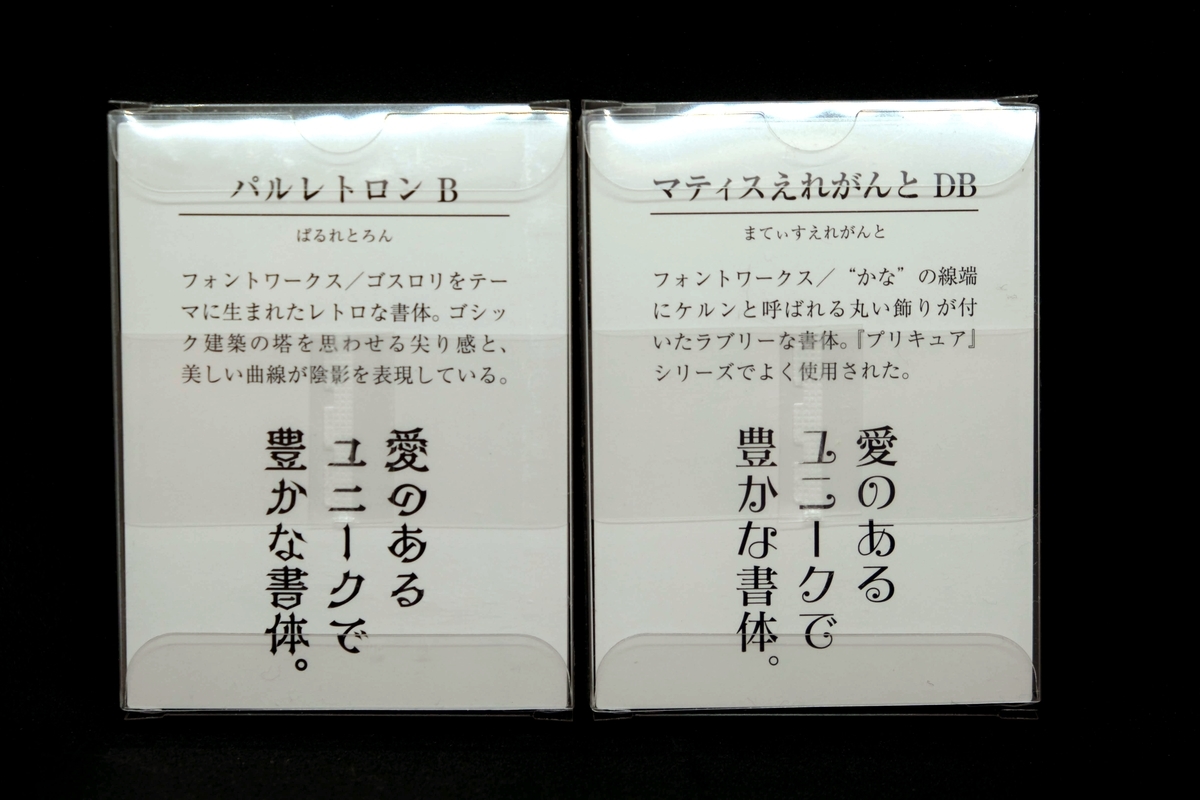 パルレトロン B
ぱるれとろん
フォントワークス／ゴスロリをテー
マに生まれたレトロな書体。ゴシッ
ク建築の塔を思わせる尖り感と、
美しい曲線が陰影を表現している。
愛のある
ユニークで
豊かな書体。
マティスえれがんと DB
まてぃすえれがんと
フォントワークス／“かな”の線端
にケルンと呼ばれる丸い飾りが付
いたラブリーな書体。『プリキュア』
シリーズでよく使用された。
愛のある
ユニークで
豊かな書体。